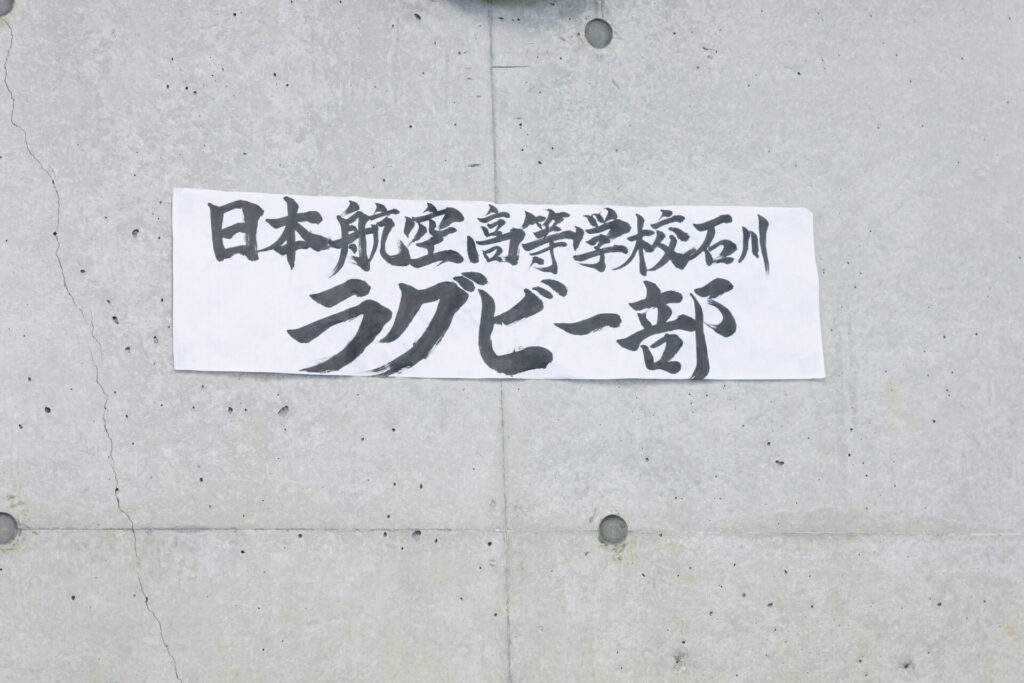 日本航空高等学校石川
ラグビー部